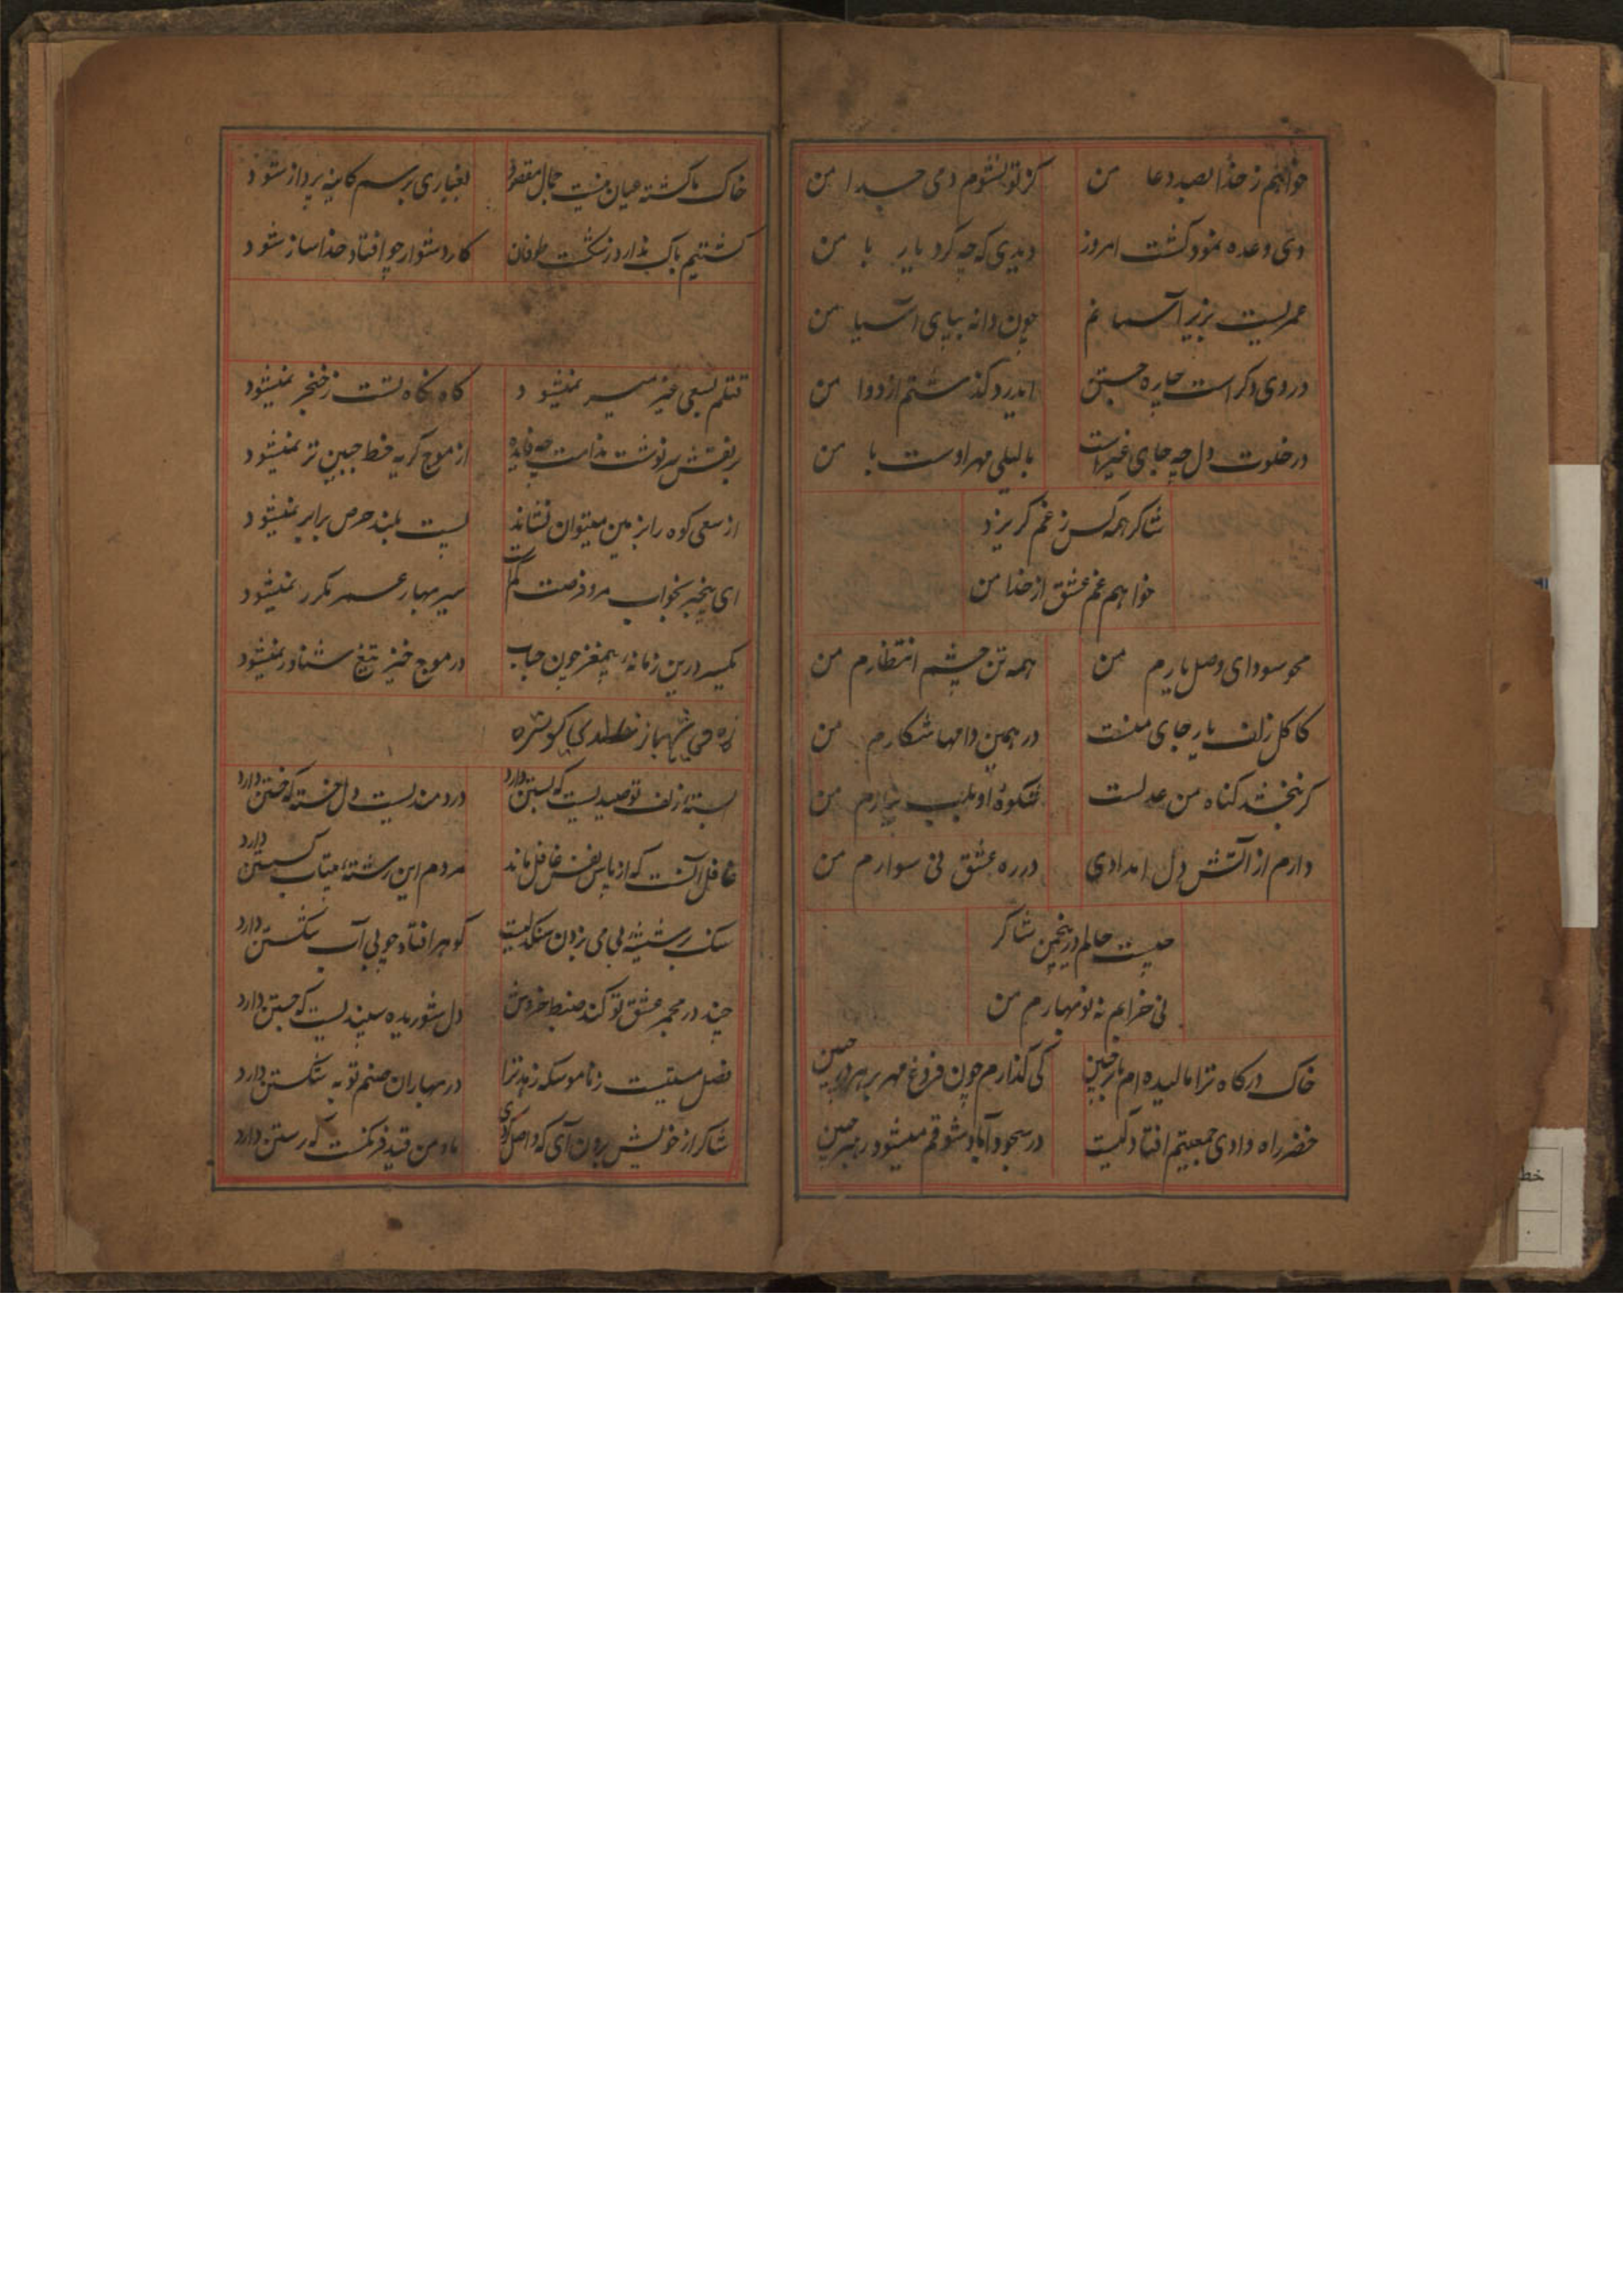 خواهم ز خدا بصد دعا من
کز تو نشوم دمی جدا من
دی وعده نمود کشت امروز
دیدی که چه کرد یار با من
عمریست بزیر آسمانم
چون دانه بپای آسیا من
دردی دکر است چاره جستن
از درد کذشتم از دوا من
در خلوت دل چه جای غیر است
با لیلی مهر اوست با من
شاکر همه کس ز غم کریزد
خواهم غم عشق از خدا من
محو سودای وصل یارم من
همه تن چشم انتظارم من
کاکل زلف یار جای منست
در همین دامها شکارم من
کر نبخشد کناه من عدلست
شکوهٔ او بلب نیارم من
دارم از آتش دل امدادی
در ره عشق نی سوارم من
چیست حالم درین چمن شاکر
نی خزانم نه نوبهارم من
خاک درکاه ترا مالیده ام بر جبین
کی کذارم چون فروغ مهر بر هر در جبین
خضر راه وادی جمعیتم افتادکیست
در سجود آباد شوقم میشود رهبر جبین
خاک ناکشته عیان نیست جمال مقصود
بغباری برسم کاینه پرداز شود
کشتیم باک ندارد ز شکست طوفان
کار دشوار چو افتاد خدا ساز شود
قتلم بسعی غیر میسر نمیشود
کاه نکاه تست ز خنجر نمیشود
بر نقش سرنوشت ندامت چه فایده
از موج کریه خط جبین تر نمیشود
از سعی کوه را بزمین میتوان نشاند
پست بلند حرص برابر نمیشود
ای بیخبر بخواب مرو فرصت کم است
سیر بهار عمر مکرر نمیشود
درین زمانه بیمغز چون حباب
در موج خیز تیغ شناور نمیشود
بستهٔ زلف تو صیدیست که بستن دارد
دردمندیست دل خسته که خستن دارد
غافل آنست که از پاس نفس غافل ماند
مردم این رشتهٔ بیتاب کسستن دارد
سنک بر شیشهٔ بی می زدن سنکدلیست
کوهر افتاد چو بی آب شکستن دارد
چند در مجمر عشق تو کند ضبط خروش
دل شوریده سپندیست که جستن دارد
فصل مستیست ز ناموسکه زهد ترا
در بهاران صنم توبه شکستن دارد
شاکر از خویش برون آی که واصل کردی
ما و من قید فرنکست که رستن دارد